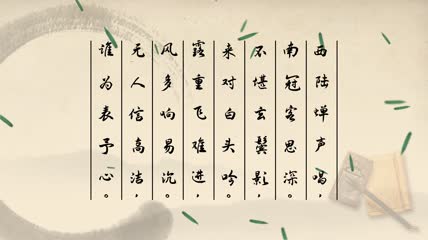 西陆蝉声唱，
南冠客思深。
不堪玄鬓影，
来对白头吟。
露重飞难进，
风多响易沉。
无人信高洁，
谁为表予心。